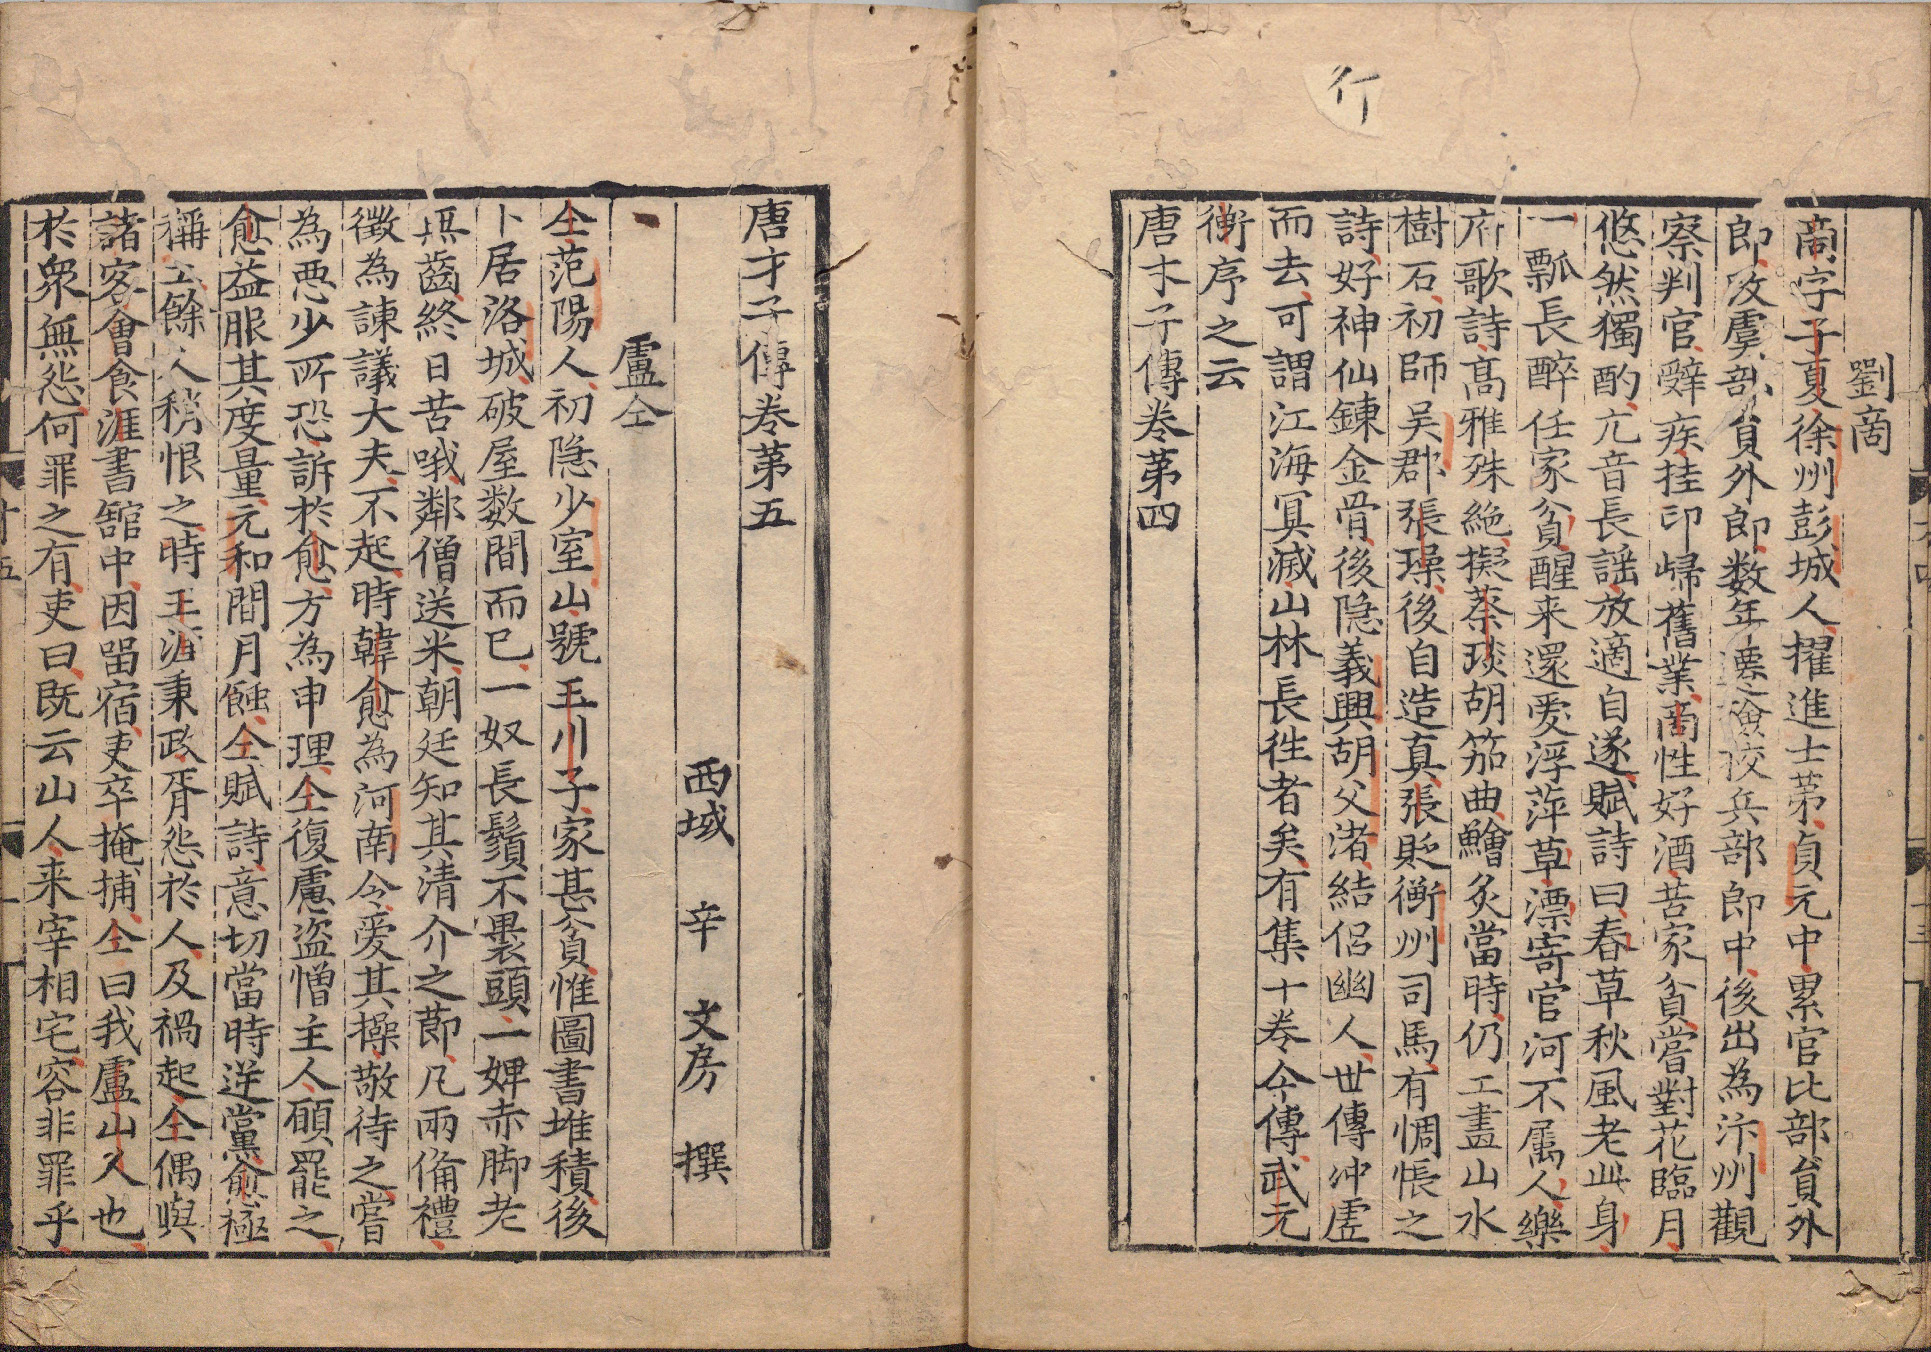 行
劉商
商字子夏徐州彭城人擢進士第貞元中累官比部員外
郎改虞部員外郎数年遷檢校兵部郎中後出為汴州觀
察判官辤疾挂印歸舊業商性好酒苦家貧嘗對花臨月
悠然獨酌亢音長謡放適自遂賦詩曰春草秋風老此身
一瓢長醉任家貧醒来還愛浮萍草漂寄官河不属人樂
府歌詩高雅殊絶擬蔡琰胡笳曲鱠炙當時仍工畫山水
樹石初師吴郡張璪後自造真張貶衡州司馬有惆悵之
詩好神仙錬金骨後隠義興胡父渚結侶幽人世傳冲虛
而去可謂江海冥滅山林長徃者矣有集十巻今傳武元
衡序之云
唐才子傳巻第四
唐才子傳巻第五
西域 辛 文房 撰
盧仝
仝范陽人初隠少室山號玉川子家甚貧惟圖書堆積後
卜居洛城破屋数間而已一奴長鬚不裹頭一婢赤脚老
無齒終日苦哦鄰僧送米朝廷知其清介之節凡兩俻禮
徵為諫議大夫不起時韓愈為河南令愛其操敬待之嘗
為悪少所恐訴於愈方為申理仝復慮盗憎主人願罷之
愈益服其度量元和間月蝕仝賦詩意切當時逆黨愈極
稱工餘人稍恨之時王涯秉政胥怨於人及禍起仝偶與
諸客會食涯書舘中因留宿吏卒掩捕仝曰我盧山人也
於衆無怨何罪之有吏曰既云山人来宰相宅容非罪乎